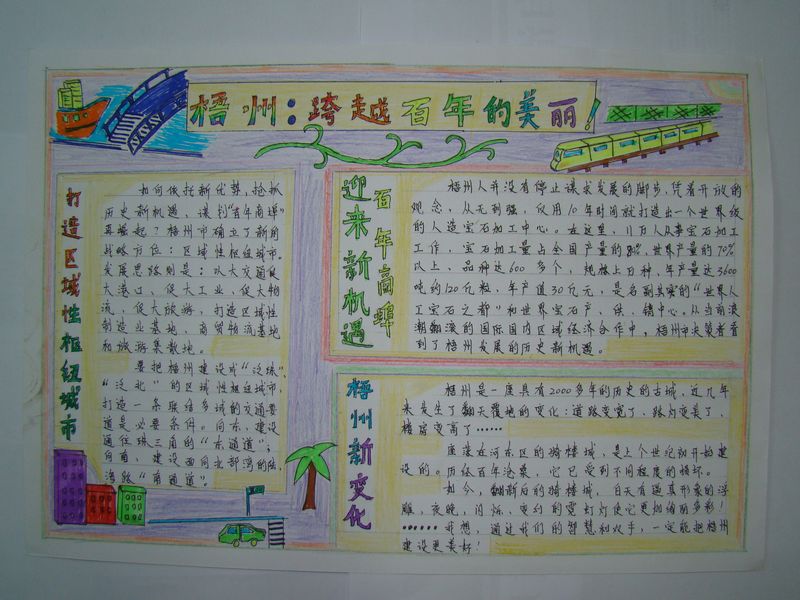 梧州：跨越百年的美丽！
打造区域性枢纽城市
如何依托新优势，抢抓
历史新机遇，谈到“百年商埠”
再崛起？梧州市确立了新的
战略方位：区域性枢纽城市。
发展思路则是：以大交通促
大港口，促大工业，促大物
流，促大旅游，打造区域性
制造业基地、商贸物流基地
和旅游集散地。
要把梧州建设成“泛珠”、
“泛北”的区域性枢纽城市，
打造一条联结多域的交通要
道是必要条件。向东，建设
通往珠三角的“东通道”；
向南，建设西向北部湾的陆、
海路“南通道”。
百年商埠
迎来新机遇
梧州人并没有停止谋求发展的脚步，凭着开放的
观念，从无到强，仅用10年时间就打造出一个世界级
的人造宝石加工中心。在这里，11万人从事宝石加工
工作，宝石加工量占全国产量的80%，世界产量的70%
以上，品种达600多个，规格上百种，年产量达3600
吨约120亿粒，年产值30亿元，是名副其实的“世界人
工宝石之都”和世界宝石产、供、销中心。从当前浪
潮翻滚的国际国内区域经济合作中，梧州市决策者看
到了梧州发展的历史新机遇。
梧州新变化
梧州是一座具有2000多年的历史的古城，近几年
来发生了翻天覆地的变化：道路变宽了、路灯变美了、
楼房变高了……
座落在河东区的骑楼城，是上个世纪初开始建
设的。历经百年沧桑，它已受到不同程度的损坏。
如今，翻新后的骑楼城，白天有逼真形象的浮
雕，夜晚，闪烁、变幻的霓虹灯使它更加绚丽多彩！
……我想，通过我们的智慧和双手，一定能把梧州
建设更美好！